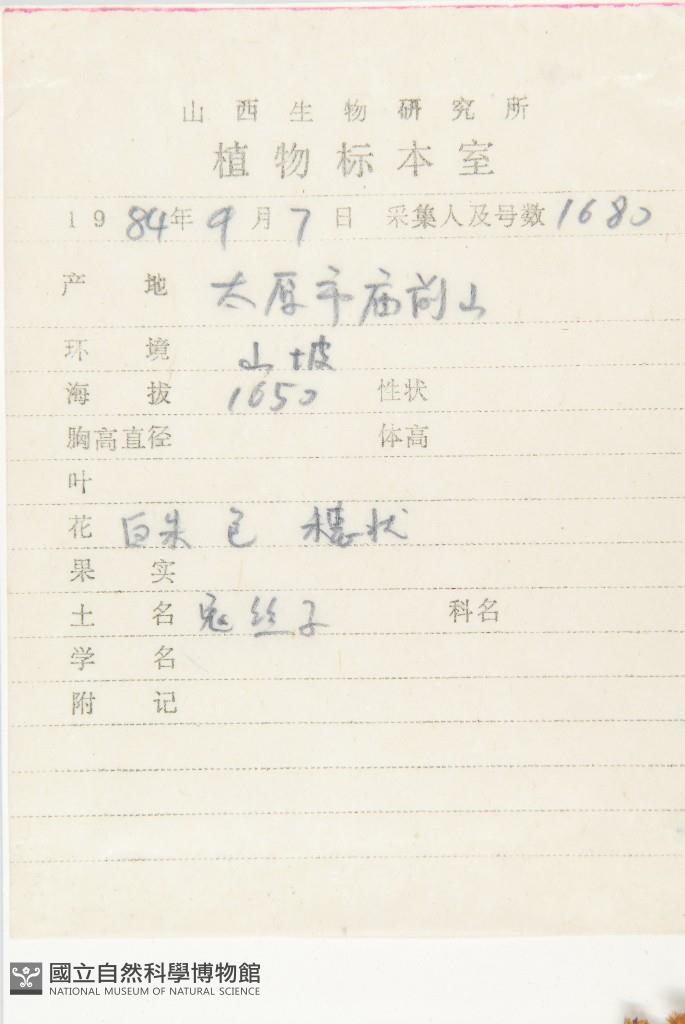 山西生物研究所
植物标本室
1984年9月7日 采集人及号数1680
产地 太原市庙前山
环境 山坡
海拔 1650 性状
胸高直径 体高
叶
花 白朱色 穗状
果实
土名 兔丝子 科名
学名
附记
國立自然科學博物館
NATIONAL MUSEUM OF NATURAL SCIENCE